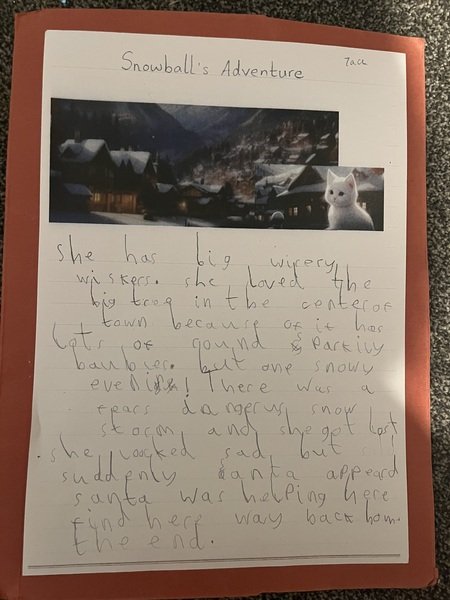 Snowball's Adventure
she has big wirery
wiskers. she loved the
big tree in the center of
town because of it has
lots of gound sparkily
baubles. but one snowy
evening! There was a
fears dangerus snow
storm and she got lost
she looked sad but
suddenly santa appeard
santa was helping here
find here way back hom.
the end.